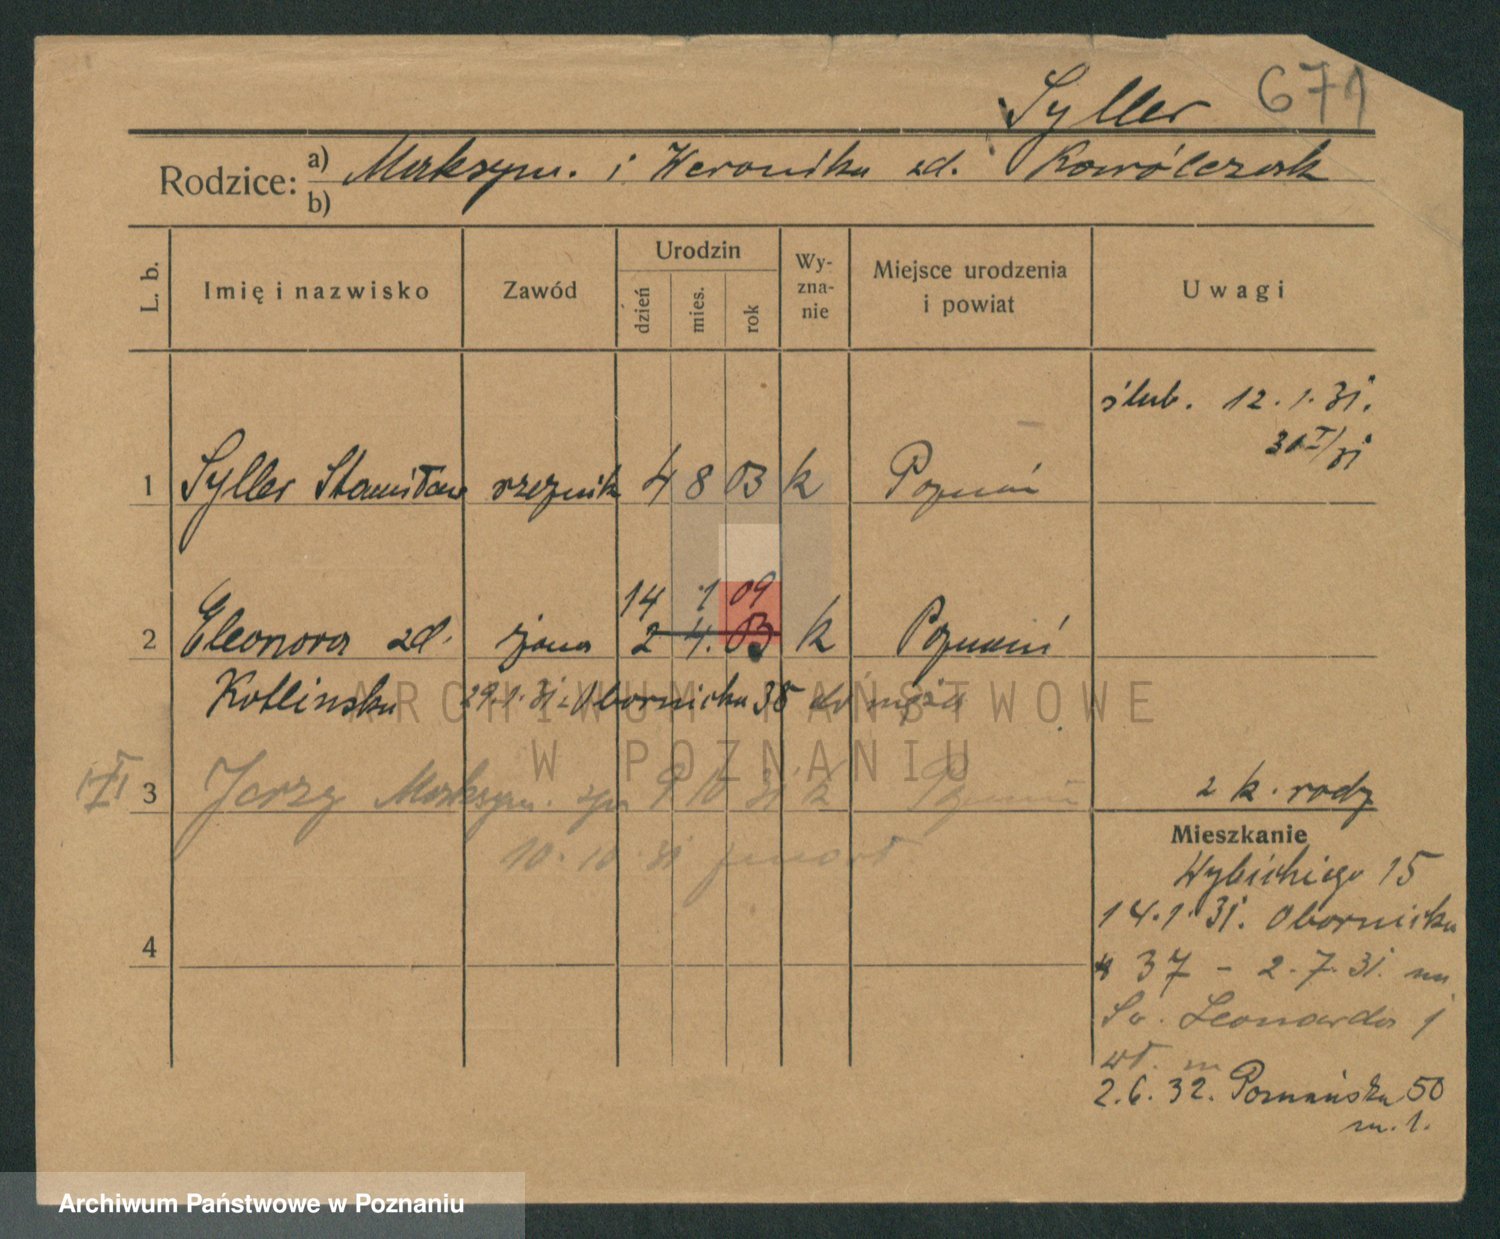 Syller 671
Rodzice: a) Maksym. i Weronika zd. Kowólczak
b)
L. b. Imię i nazwisko Zawód Urodzin dzień mies. rok Wy-zna-nie Miejsce urodzenia i powiat Uwagi
ślub. 12.1.31.
31 I/31
1 Syller Stanisław rzeźnik 4 8 03 k Poznań
14 1 09
2 Eleonora zd. żona 2 4. 03 k Poznań
Kotlinska 29.1.31. Obornicka 38 do męża
3 Jerzy Maksym. syn 9 10 31 k Poznań
2 k. rodz
10.10.31 zmarł
Mieszkanie
Wybickiego 15
14.1.31. Obornicka
4
37 - 2.7.31. na
Sw. Leonarda 1
wł. m
2.6.32. Poznańska 50
m. 1.
ARCHIWUM PAŃSTWOWE
W POZNANIU
Archiwum Państwowe w Poznaniu